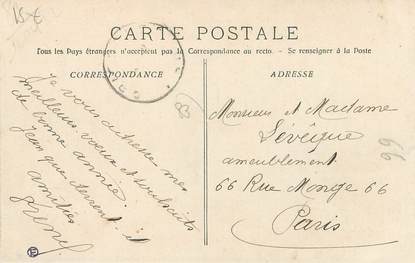 15€
CARTE POSTALE
Tous les Pays étrangers n'acceptent pas la Correspondance au recto. – Se renseigner à la Poste
CORRESPONDANCE
Je vous adresse mes
meilleurs voeux et souhaits
de bonne année
amitiés
ADRESSE
Monsieur et Madame
Lévêque
ameublement
66 Rue Monge 66
Paris
66